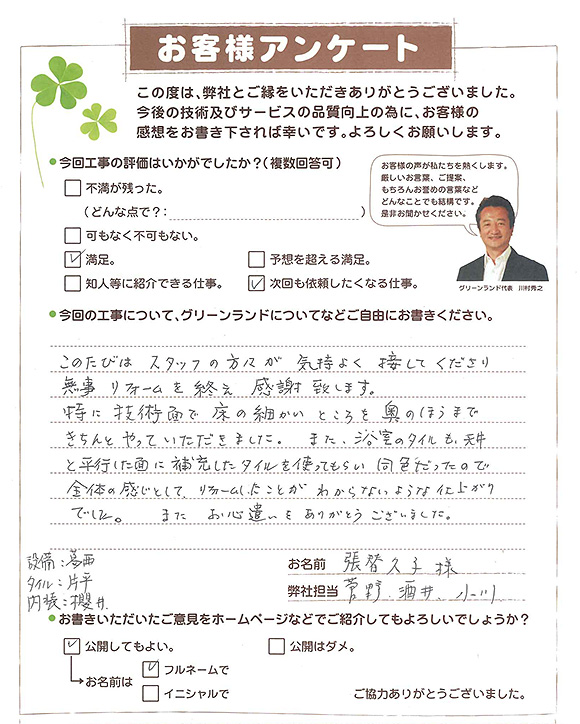 お客様アンケート
この度は、弊社とご縁をいただきありがとうございました。
今後の技術及びサービスの品質向上の為に、お客様の
感想をお書き下されば幸いです。よろしくお願いします。
●今回工事の評価はいかがでしたか?(複数回答可)
お客様の声が私たちを熱くします。
厳しいお言葉、ご提案、
もちろんお誉めの言葉など
どんなことでも結構です。
是非お聞かせください。
□不満が残った。
(どんな点で?: )
□可もなく不可もない。
☑満足。 □予想を超える満足。
□知人等に紹介できる仕事。 ☑次回も依頼したくなる仕事。
グリーンランド代表 川村秀之
●今回の工事について、グリーンランドについてなどご自由にお書きください。
このたびは スタッフの方々が 気持よく 接してくださり
無事 リフォームを 終え 感謝 致します。
特に 技術面で 床の細かい ところを 奥のほうまで
きちんと やっていただきました。 また、浴室のタイルも、天井
と平行した面に 補充したタイルを使ってもらい 同色だったので
全体の感じとして、リフォームしたことが わからないような 仕上がり
でした。 また お心遣いを ありがとう ございました。
設備:葛西
タイル:片平
内装:櫻井
お名前 張替久子 様
弊社担当 菅野、酒井、小川
●お書きいただいたご意見をホームページなどでご紹介してもよろしいでしょうか?
☑公開してもよい。 □公開はダメ。
お名前は ☑フルネームで
□イニシャルで
ご協力ありがとうございました。